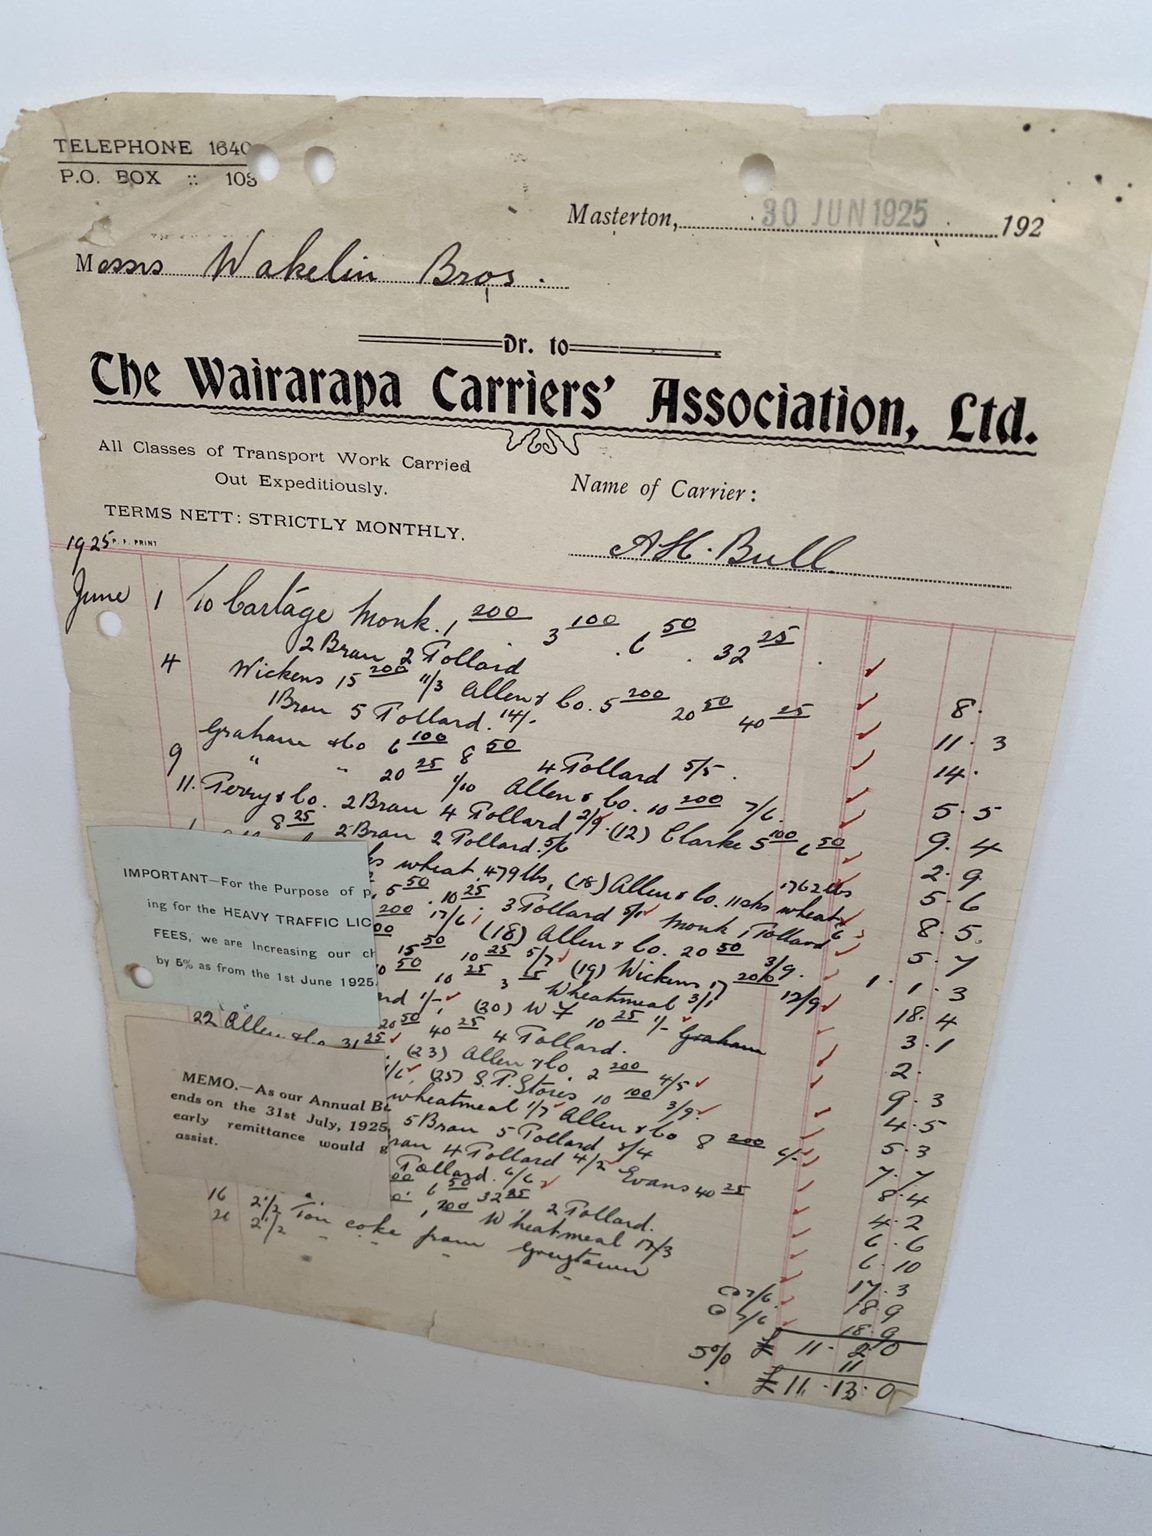 TELEPHONE 1640
P.O. BOX :: 108
Masterton, 30 JUN 1925 192
Messrs Wakelin Bros.
Dr. to
The Wairarapa Carriers' Association, Ltd.
All Classes of Transport Work Carried
Out Expeditiously.
Name of Carrier:
TERMS NETT: STRICTLY MONTHLY.
A.H. Bull
1925 P. P. PRINT
June 1 To Cartage Monk. 1 200 3 100 6 50 32 25
2 Bran 2 Pollard 8.
4 Wickens 15 200 11/3 Allen & Co. 5 200 20 50 40 25 11. 3
1 Bran 5 Pollard. 14/- 14.
Graham & Co 6 100 8 50
9 " " 20 25 4 Pollard 5/5. 5. 5
1/10 Allen & Co. 10 200 7/6. 9. 4
11. Perry & Co. 2 Bran 4 Pollard 2/9. (12) Clarke 5 100 6 50 2. 9
8 25 2 Bran 2 Pollard. 5/6 5. 6
wheat 479 lbs, (18) Allen & Co. 11 sks wheat 1762 lbs 8. 5.
5 50 10 25 3 Pollard 5/1 Monk 1 Pollard 5. 7
200 17/6 (18) Allen & Co. 20 50 3/9. 1. 1. 3
15 50 10 25 5/7 (19) Wickens 17 200 12/9 18. 4
50 10 25 3 25 Wheatmeal 3/1 3. 1
1/- (20) W 10 25 1/- Graham 2.
22 Allen & Co 31 25 20 50 40 25 4 Pollard. 9. 3
(23) Allen & Co. 2 200 4/5 4. 5
(25) S.P. Stores 10 100 3/9. 5. 3
wheatmeal 1/7 Allen & Co 8 200 7. 7
5 Bran 5 Pollard 8/4 8. 4
4 Pollard 4/2 Evans 40 25 4. 2
Pollard. 6/6 6. 6
6 50 32 25 2 Pollard. 6. 10
1 200 Wheatmeal 17/3 17. 3
16 2 1/2 Ton coke from Greytown @ 7/6 18. 9
2 1/2 " " " " @ 7/6 18. 9
£ 11. 2 0
5% 11
£ 11. 13. 0
IMPORTANT—For the Purpose of p
ing for the HEAVY TRAFFIC LIC
FEES, we are Increasing our ch
by 5% as from the 1st June 1925.
MEMO.—As our Annual B
ends on the 31st July, 1925,
early remittance would g
assist.